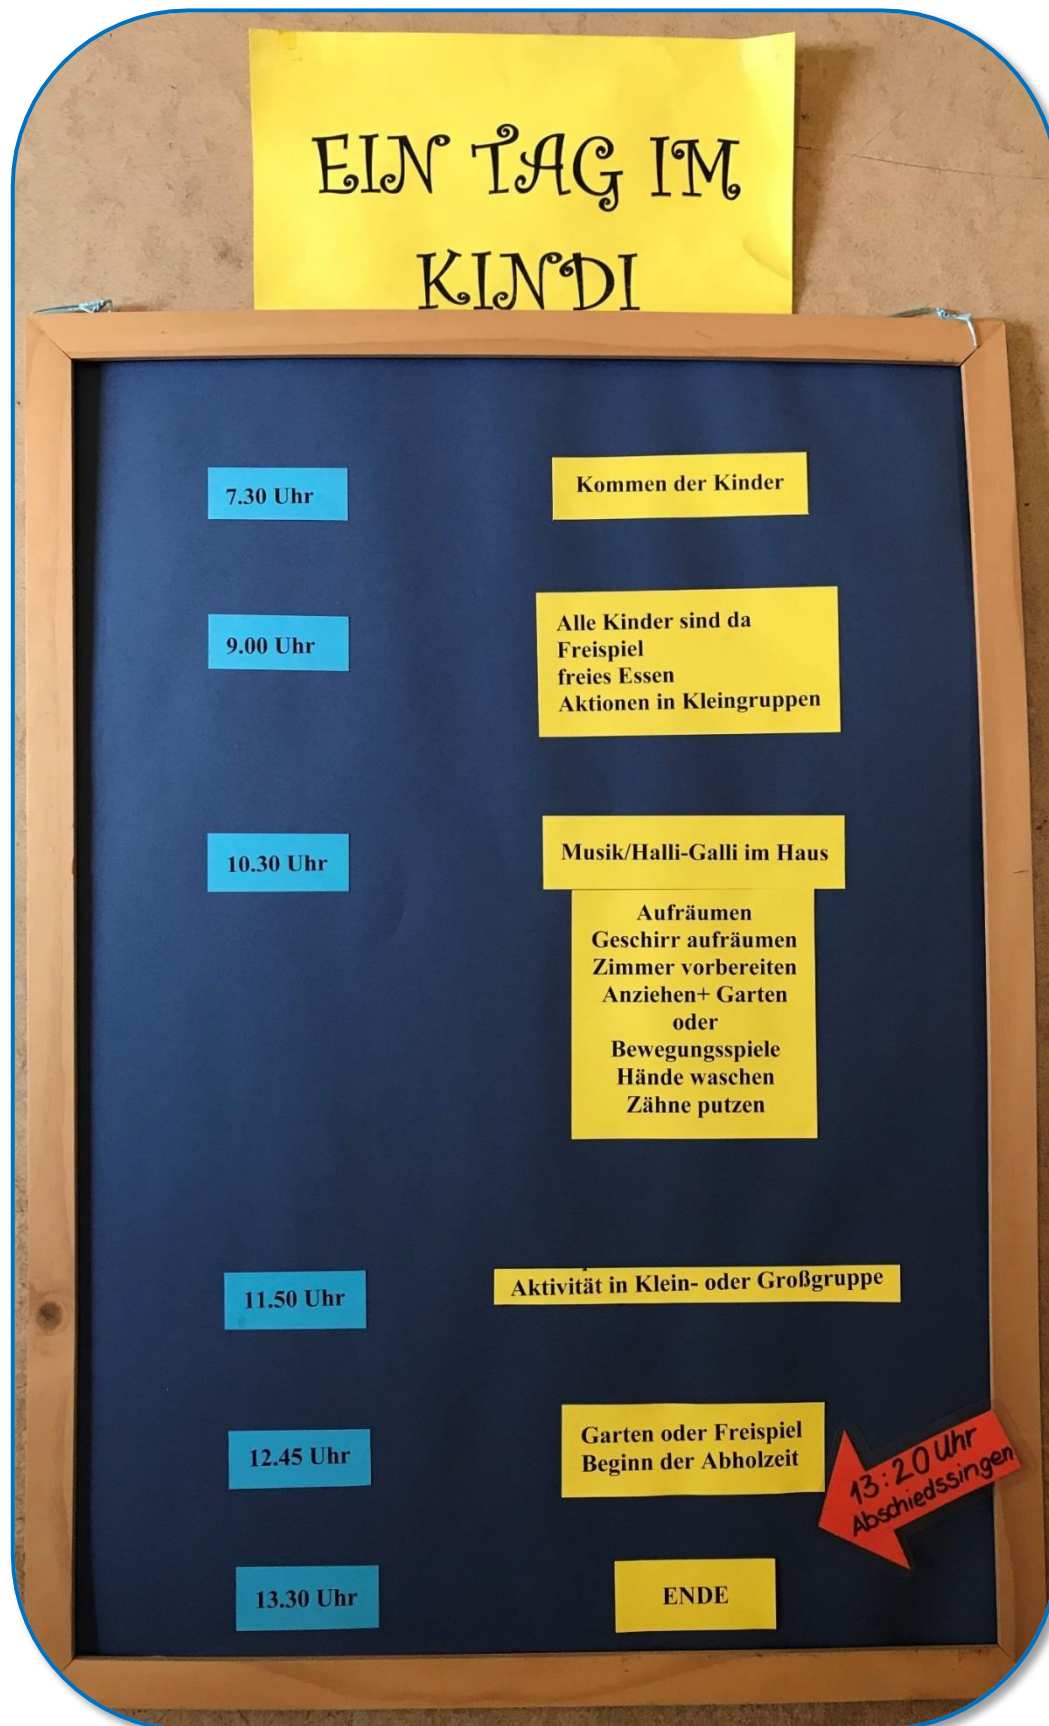 EIN TAG IM
KINDI
7.30 Uhr
Kommen der Kinder
9.00 Uhr
Alle Kinder sind da
Freispiel
freies Essen
Aktionen in Kleingruppen
10.30 Uhr
Musik/Halli-Galli im Haus
Aufräumen
Geschirr aufräumen
Zimmer vorbereiten
Anziehen+ Garten
oder
Bewegungsspiele
Hände waschen
Zähne putzen
11.50 Uhr
Aktivität in Klein- oder Großgruppe
12.45 Uhr
Garten oder Freispiel
Beginn der Abholzeit
13:20 Uhr
Abschiedssingen
13.30 Uhr
ENDE